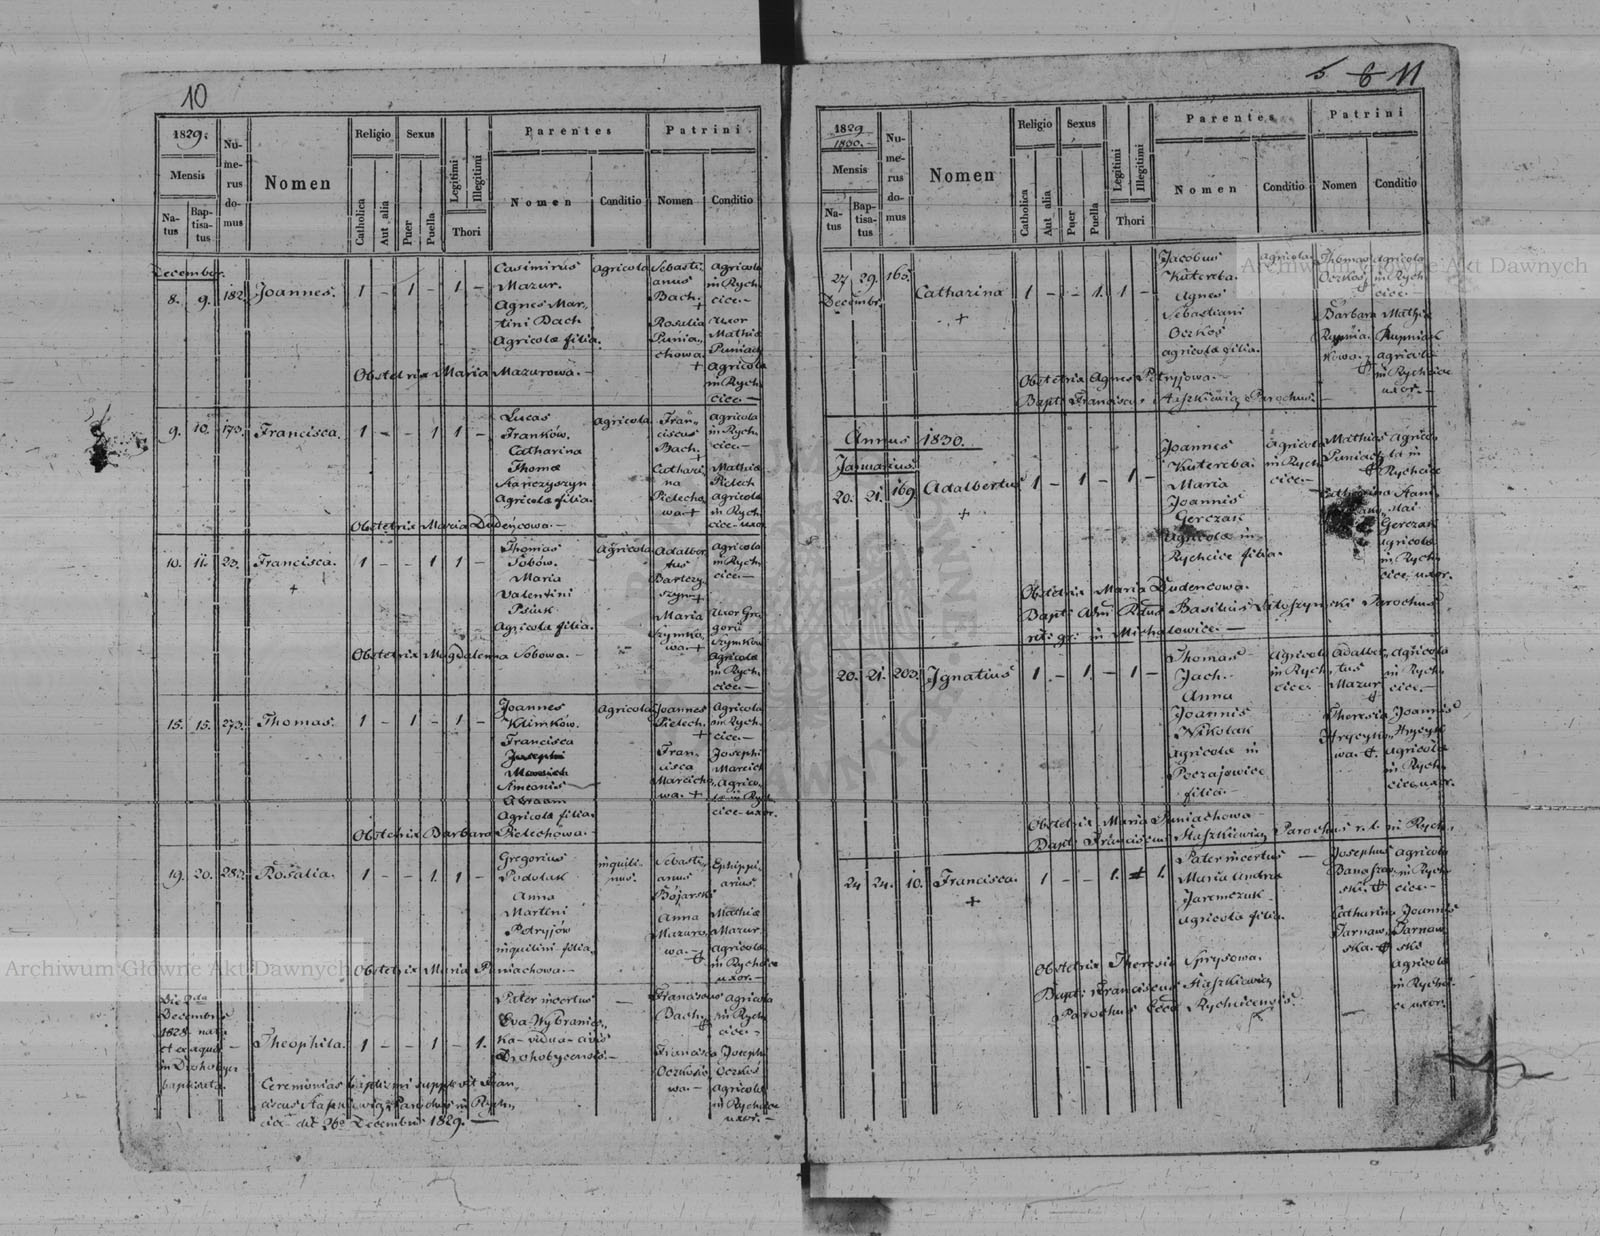 10
1829.
Mensis
Natus
Baptisatus
Numerus domus
Nomen
Religio
Catholica
Aut alia
Sexus
Puer
Puella
Legitimi
Illegitimi
Thori
Parentes
Nomen
Conditio
Patrini
Nomen
Conditio
December.
8. 9. 182. Joannes. 1 - 1 - 1 -
Casimirus
Mazur.
Agnes Mar-
tini Bach
Agricolæ filia.
Agricola
Sebasti-
anus
Bach. +
Rosalia
Punia-
chowa. +
Agricola
in Rych-
cice.-
Uxor
Mathiæ
Puniach
Agricola
in Rych-
cice.-
Obstetrix Maria Mazurowa.-
9. 10. 173. Francisca. 1 - - 1 1 -
Lucas
Franków.
Catharina
Thomæ
Stańczyszyn
Agricolæ filia.
Agricola
Fran-
ciscus
Bach. +
Cathari-
na
Pielecho-
wa. +
Agricola
in Rych-
cice.-
Mathiæ
Pielech
Agricolæ
in Rych-
cice uxor
Obstetrix Maria Dudeńcowa.-
10. 11. 23. Francisca. 1 - - 1 1 -
+
Thomas
Sobów.
Maria
Valentini
Psiuk
Agricolæ filia.
Agricola
Adalber-
tus
Bartczy-
szyn +
Maria
Szymko-
wa. +
Agricola
in Rych-
cice.-
Uxor Gre-
gorii
Szymków
Agricolæ
in Rych-
cice.-
Obstetrix Magdalena Sobowa.-
15. 15. 273. Thomas. 1 - 1 - 1 -
Joannes
Klimków.
Francisca
Josephi
Antonii
Abraam
Agricolæ filia.
Agricola
Joannes
Pielech. +
Fran-
cisca
Marcicho-
wa. +
Agricola
in Rych-
cice.-
Josephi
Marcich
Agrico-
læ in Rych-
cice uxor.
Obstetrix Barbara Pielechowa.-
19. 20. 282. Rosalia. 1 - - 1. 1 -
Gregorius
Podolak
Anna
Martini
Petryjów
inquilini filia.
inquili-
nus.
Sebasti-
anus
Bojarski
Anna
Mazuro-
wa.- +
Ephippi-
arius.
Mathiæ
Mazur.
Agricolæ
in Rychcice
uxor.-
Obstetrix Maria Puniachowa.-
Die 2da
Decembris
1828 nata
et ex aqua
in Drohobycz
baptisata.
- Theophila. 1 - - 1 - 1.
Pater incertus -
Eva Wybraniec-
ka - vidua - civis
Drohobycensis.-
Franciscus
Bach. +
Francisca
Oczkosio-
wa.-
Agricola
in Rych-
cice.-
Josephi
Oczkoś
Agricolæ
in Rychcice
uxor.-
Ceremonias baptismi supplevit Fran-
ciscus Staszkiewicz Parochus in Rych-
cice die 26a Decembris 1829.-
5 6 11
1829
1830.-
Mensis
Natus
Baptisatus
Numerus domus
Nomen
Religio
Catholica
Aut alia
Sexus
Puer
Puella
Legitimi
Illegitimi
Thori
Parentes
Nomen
Conditio
Patrini
Nomen
Conditio
27. 29. 165. Catharina 1 - - 1. 1 -
Decembr.
+
Jacobus
Kutereba.
Agnes
Sebastiani
Oczkoś
agricolæ filia.
Agricola
Thomas
Oczkoś
Barbara
Agricola
in Rych-
cice.-
Mathiæ
Puniach
agricolæ
in Rychcice
uxor.-
Obstetrix Agnes Petryjowa.-
Bapt: Franciscus Staszkiewicz Parochus.-
Annus 1830.
Januarius.
20. 21. 169. Adalbertus 1 - 1 - 1 -
+
Joannes
Kutereba.
Maria
Joannis
Gerczak
Agricolæ in
Rychcice filia.
Agricola
in Rych-
cice.-
Mathias
Puniach
Catharina
Agrico-
la in
Rychcice
Stani-
slai
Gerczak
agricolæ
in Rych-
cice uxor.
Obstetrix Maria Dudencowa.
Bapt: Adm: Rdus Basilius Parochus
rit: gr: in Michałowice.-
20. 21. 203. Ignatius 1. - 1. - 1 -
Thomas
Jach.
Anna
Joannis
Nikolak
agricolæ in
Poczajowice
filia.-
Agricola
in Rych-
cice.
Adalber-
tus
Mazur
Theresia
Hrycyko-
wa.
Agricola
in Rych-
cice.-
Joannis
Hrycyk
agricolæ
in Rych-
cice uxor.
Obstetrix Maria Puniachowa.-
Bapt: Franciscus Staszkiewicz Parochus r. l. in Rych.
24. 24. 10. Francisca. 1 - - 1. 1.
+
Pater incertus -
Maria Andreæ
Jaremczuk
agricolæ filia.
Josephus
Banaszew-
ski.
Catharina
Tarnaw-
ska.
Agricola
in Rych-
cice.-
Joannis
Tarnaw-
ski
Agricolæ
in Rychci-
ce uxor.
Obstetrix Theresia Sprysowa.
Bapt: Franciscus Staszkiewicz
Parochus Eccl. Rychcicensis.
Archiwum Główne Akt Dawnych
Archiwum Główne Akt Dawnych